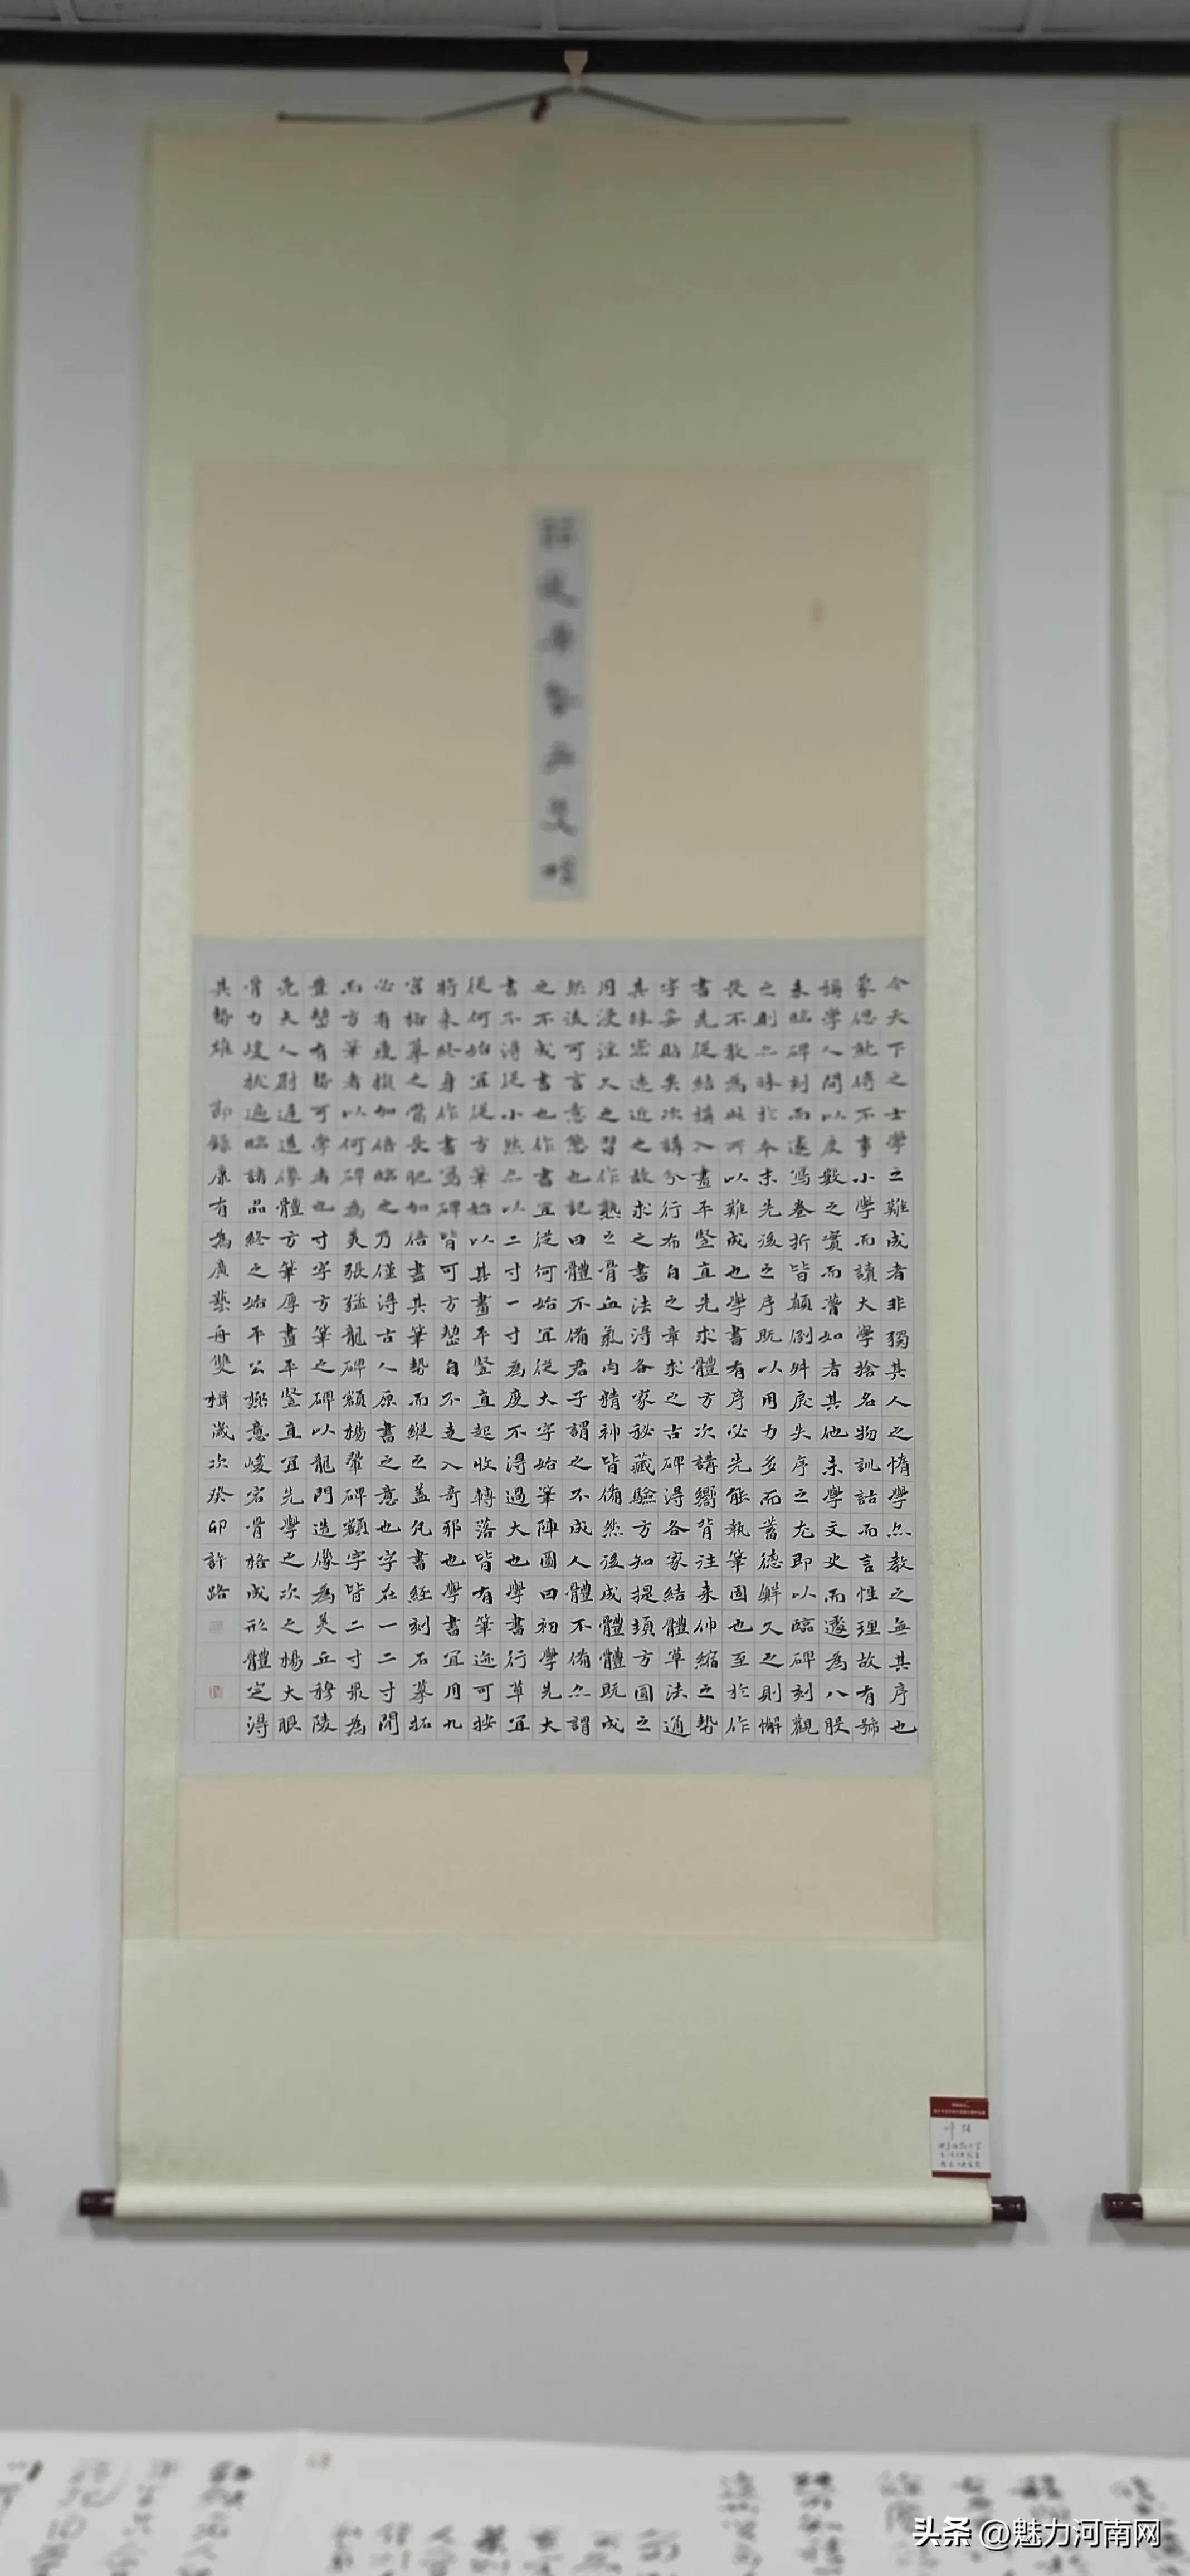 今天下之士學之難成者非獨其人之惰學亦教之無其序也
蒙偲觚傅不事小學而讀大學捨名物訓詁而言性理故有號
稱學人問以度數之實而瞢如者其他未學文史而遽為八股
未臨碑刻而遽寫卷折皆顛倒舛戾失序之尤即以臨碑刻觀
之則亦昧於本末先後之序既以用力多而蓄德鮮久之則懈
長不敢為此所以難成也學書有序必先能執筆固也至於作
書先從結構入畫平豎直先求體方次講嚮背往來伸縮之勢
字妥貼矣次講分行布白之章求之古碑得各家結體草法通
其疎密遠近之故求之書法得各家秘藏驗方知提頓方圓之
用浸淫久之習作熟之骨血氣肉精神皆備然後成體體既成
然後可言意態也記曰體不備君子謂之不成人體不備亦謂
之不成書也作書宜從何始宜從大字始筆陣圖曰初學先大
書不得從小然亦以二寸一寸為度不得過大也學書行草宜
從何始宜從方筆始以其畫平豎直起收轉落皆有筆迹可按
將來終身作書寫碑皆可方整自不走入奇邪也學書宜用九
宮格摹之當長肥加倍盡其筆勢而縱之蓋凡書經刻石摹拓
必有瘦損加倍臨之乃僅得古人原書之意也字在一二寸間
而方筆者以何碑為美張猛龍碑額楊翬碑額字皆二寸最為
豐整有勢可學者也寸字方筆之碑以龍門造像為美丘穆陵
亮夫人尉遲造像體方筆厚畫平豎直宜先學之次之楊大眼
骨力峻拔遍臨諸品終之始平公極意峻宕骨格成形體定得
其勢雄 節錄康有為廣藝舟雙楫歲次癸卯許路
头条 @魅力河南网